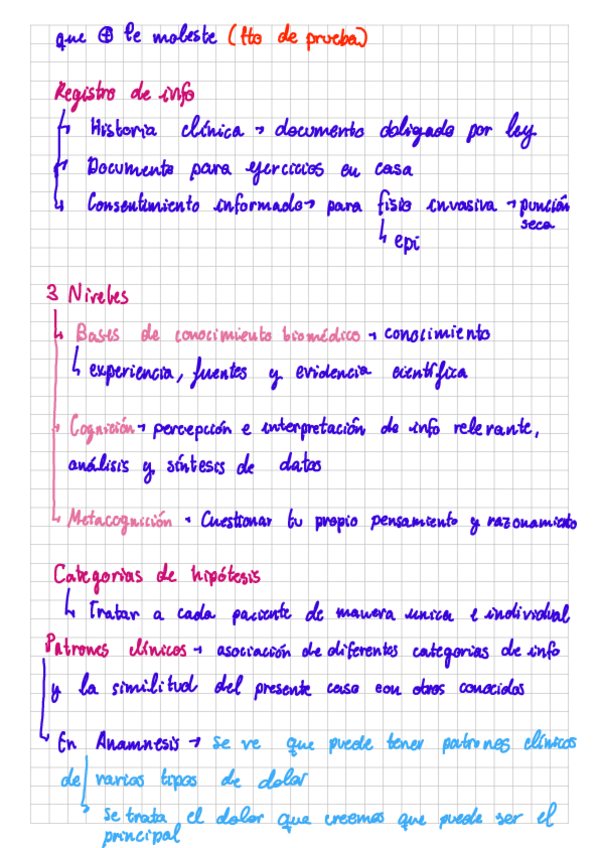 que ⊕ le moleste (tto de prueba)
Registro de info
↳ Historia clínica → documento obligado por ley
↳ Documento para ejercicios en casa
↳ Consentimiento informado → para fisio invasiva → punción
seca
↳ epi
3 Niveles
↳ Bases de conocimiento biomédico → conocimiento
↳ experiencia, fuentes y evidencia científica
↳ Cognición → percepción e interpretación de info relevante,
análisis y síntesis de datos
↳ Metacognición • Cuestionar tu propio pensamiento y razonamiento
Categorias de hipótesis
↳ Tratar a cada paciente de manera unica e individual
Patrones clínicos → asociación de diferentes categorias de info
y la similitud del presente caso con otros conocidos
↳ En Anamnesis → se ve que puede tener patrones clínicos
de varios tipos de dolor
↳ se trata el dolor que creemos que puede ser el
principal